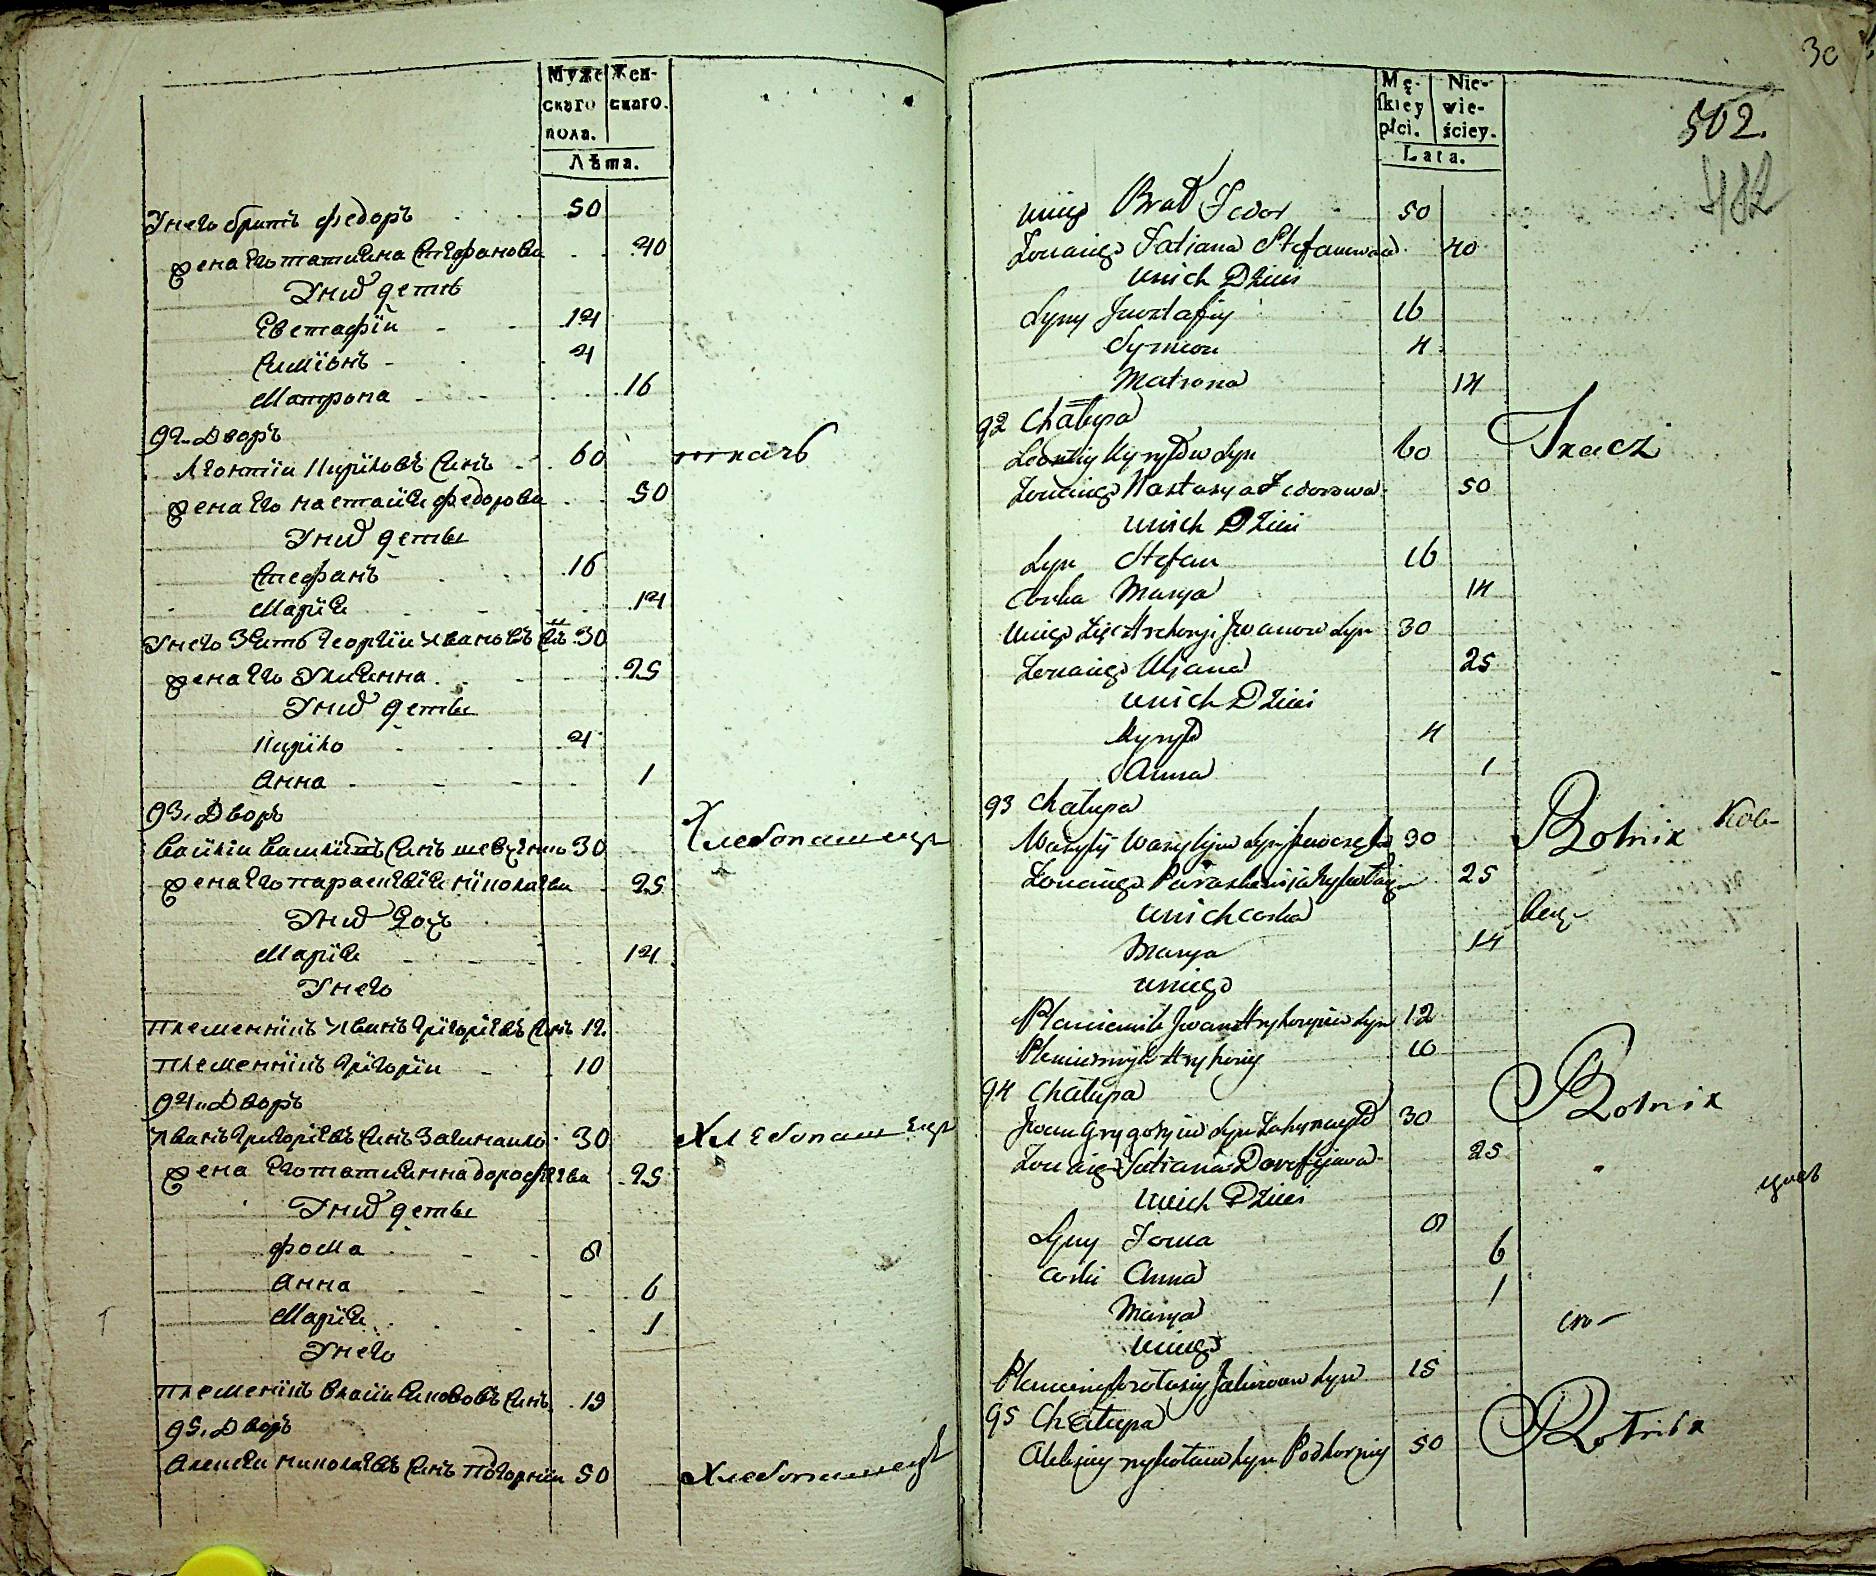 Муже Жен-
скаго скаго.
пола.
Лѣта.
Унего братъ Федоръ 50
жена Его татиана Стефанова 40
Уних дети
Евстафїи 14
Симїонъ 4
Матрона 16
92. Дворъ
Леонтїи Кириловъ Синъ 60 ткачь
жена Его настасїя федорова 50
Уних дети
Стефанъ 16
Марїя 14
Унего Зять Георгїи Ивановъ Сынъ 30
жена Его Улиянна 25
Уних дети
Кирило 4
Анна 1
93. Дворъ
Василїи Василїевъ Синъ шевченко 30 Хлебопашецъ
жена Его параскевїя николаева 25
Уних дочь
Марїя 14
Унего
племенникъ Иванъ Григорїевъ Синъ 12
племенникъ Григорїи 10
94. Дворъ
Иванъ Григорїевъ Синъ 30 Хлебопашецъ
жена Его татиянна дорофеева 25
Уних дети
Фома 8
Анна 6
Марїя 1
Унего
племеникъ Синъ 19
95. Дворъ
Алексеи николаевъ Синъ подгорнїи 50 Хлебопашецъ
30
Mę- Nie-
skiey wie-
płci. ściey.
Lata.
502.
482
uniego Brat Fedor 50
Żonaiego Tatiana Stefanowna 40
unich Dzieci
Syny Jewstafiy 16
Symeon 4
Matrona 14
92 Chałupa
Leontiy Kyryłow Syn 60 Tkacz
Żonaiego Nastasya Fedorowa 50
unich Dzieci
Syn Stefan 16
Corka Marya 14
uniego Zięć Hrehoryi Jwanow Syn 30
Żonaiego Uljana 25
unich Dzieci
Kyryło 4
Anna 1
93 Chałupa
Wasyly Wasylijew Syn Szewczenko 30 Rolnik
Żonaiego Paraskewija Mykołaiewa 25
unich corka
Marya 14
uniego
Plemiennik Jwan Hryhoryiew Syn 12
Plemiennyk Hryhoriy 10
94 Chałupa
Jwan Grygoryiew Syn 30 Rolnik
Żonaiego Tatiana Dorofijewa 25
unich Dzieci
Syny Foma 8
Corki Anna 6
Marya 1
uniego
15
95 Chałupa
Aleksiey Mykołaiew Syn Podhorniy 50 Rolnik